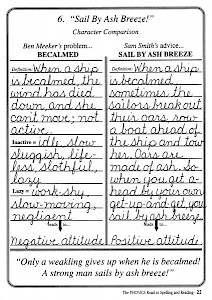 6. "Sail By Ash Breeze!"
Character Comparison
Ben Meeker's problem...
BECALMED
Definition: When a ship
is becalmed, the
wind has died
down, and she
can't move; not
active.
Inactive = idle, slow
sluggish, life-
less, slothful,
lazy
Lazy = work-shy,
slow-moving,
negligent
Negative attitude
Sam Smith's advice...
SAIL BY ASH BREEZE
Definition: When a ship
is becalmed,
sometimes the
sailors break out
their oars, row
a boat ahead of
the ship and tow
her. Oars are
made of ash. So
when you get a-
head by your own
get-up-and-get, you
sail by ash breeze
Positive attitude
"Only a weakling gives up when he is becalmed!
A strong man sails by ash breeze!"
The PHONICS Road to Spelling and Reading - 21